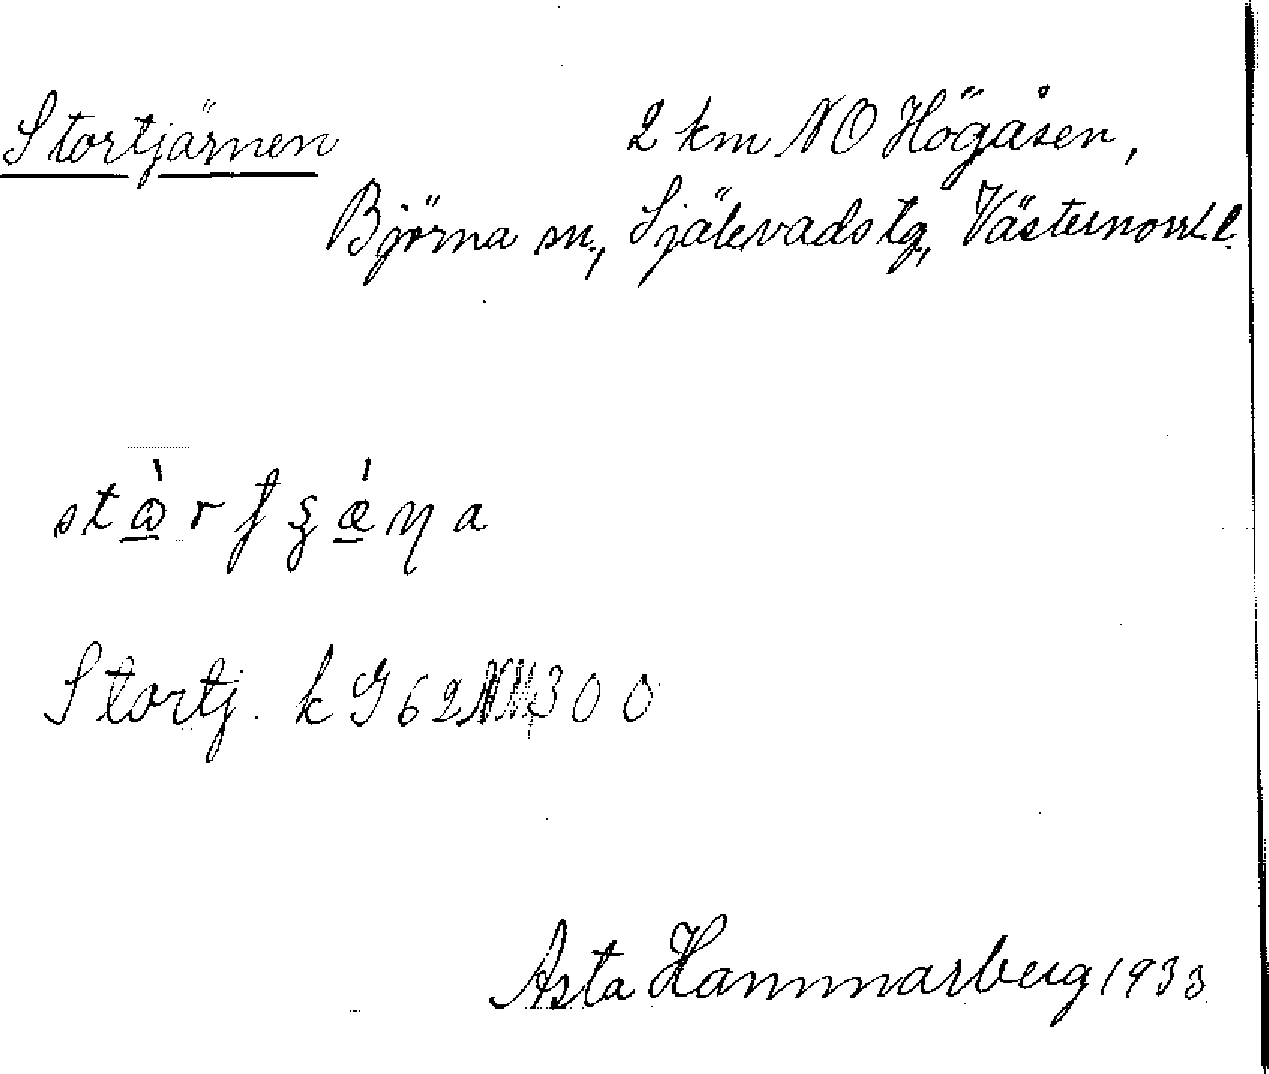 Stortjärnen 2 km NO Högåsen,
Björna sn., Själevads tg, Västernorrl l.
Stortj. k G 62 300
Asta Hammarberg 1933